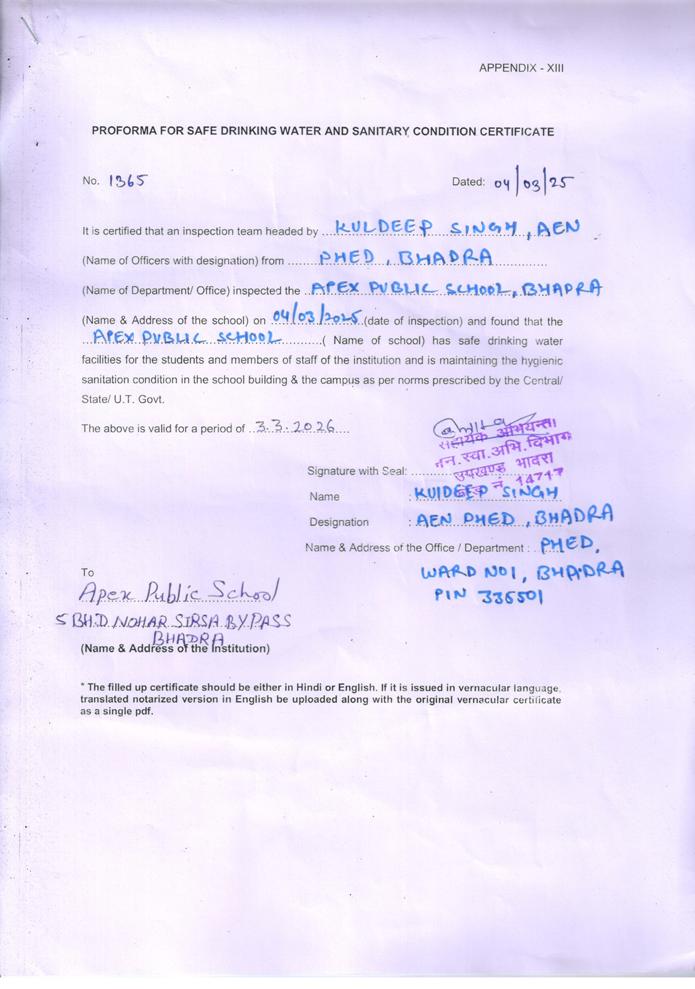 APPENDIX - XIII
PROFORMA FOR SAFE DRINKING WATER AND SANITARY CONDITION CERTIFICATE
No. 1365 Dated: 04/03/25
It is certified that an inspection team headed by ...KULDEEP SINGH, AEN
(Name of Officers with designation) from ........PHED, BHADRA................
(Name of Department/ Office) inspected the ..APEX PUBLIC SCHOOL, BHADRA
(Name & Address of the school) on 04/03/2025 (date of inspection) and found that the
..APEX PUBLIC SCHOOL...........( Name of school) has safe drinking water
facilities for the students and members of staff of the institution and is maintaining the hygienic
sanitation condition in the school building & the campus as per norms prescribed by the Central/
State/ U.T. Govt.
The above is valid for a period of ..3.3.2026....
सहायक अभियन्ता
जन.स्वा.अभि.विभाग
Signature with Seal: ............
उपखण्ड भादरा
नं. 14717
Name : KUlDEEP SINGH
Designation : AEN PHED, BHADRA
Name & Address of the Office / Department : PHED,
WARD NO1, BHADRA
PIN 335501
To
Apex Public School
5 BHD NOHAR SIRSA BYPASS
BHADRA
(Name & Address of the Institution)
* The filled up certificate should be either in Hindi or English. If it is issued in vernacular language,
translated notarized version in English be uploaded along with the original vernacular certificate
as a single pdf.